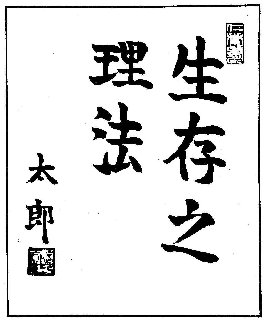 生存之
理法
太郎